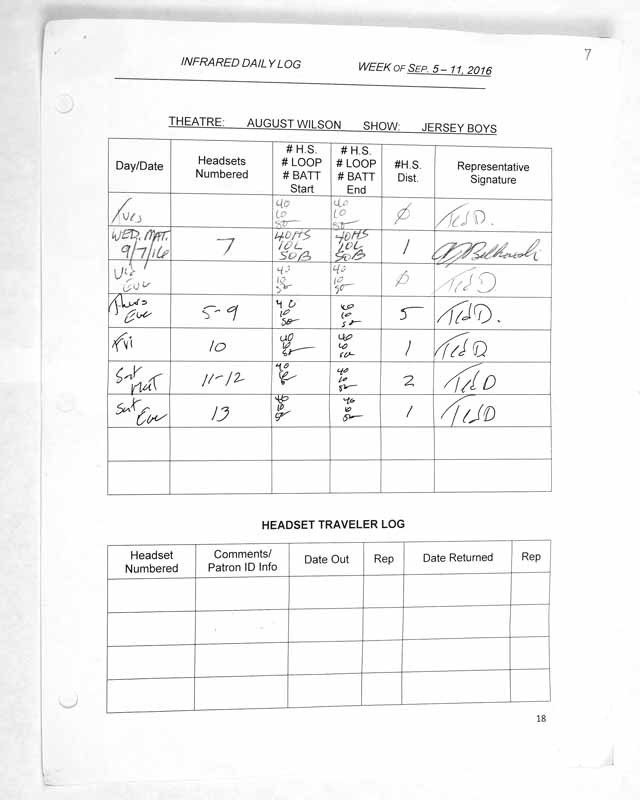 7
INFRARED DAILY LOG WEEK OF SEP. 5 – 11, 2016
THEATRE: AUGUST WILSON SHOW: JERSEY BOYS
Day/Date Headsets Numbered # H.S. # LOOP # BATT Start # H.S. # LOOP # BATT End #H.S. Dist. Representative Signature
Tues 40 10 50 40 10 50 Ø Ted D.
WED. MAT. 9/7/16 7 40HS 10L 50B 40HS 10L 50B 1
Eve 40 10 50 40 10 50 Ø Ted D
Thurs Eve 5-9 40 10 50 40 10 50 5 Ted D.
Fri 10 40 10 50 40 10 50 1 Ted D
Sat Mat 11-12 40 10 40 10 50 2 Ted D
Sat Eve 13 40 10 50 40 10 50 1 Ted D
HEADSET TRAVELER LOG
Headset Numbered Comments/ Patron ID Info Date Out Rep Date Returned Rep
18